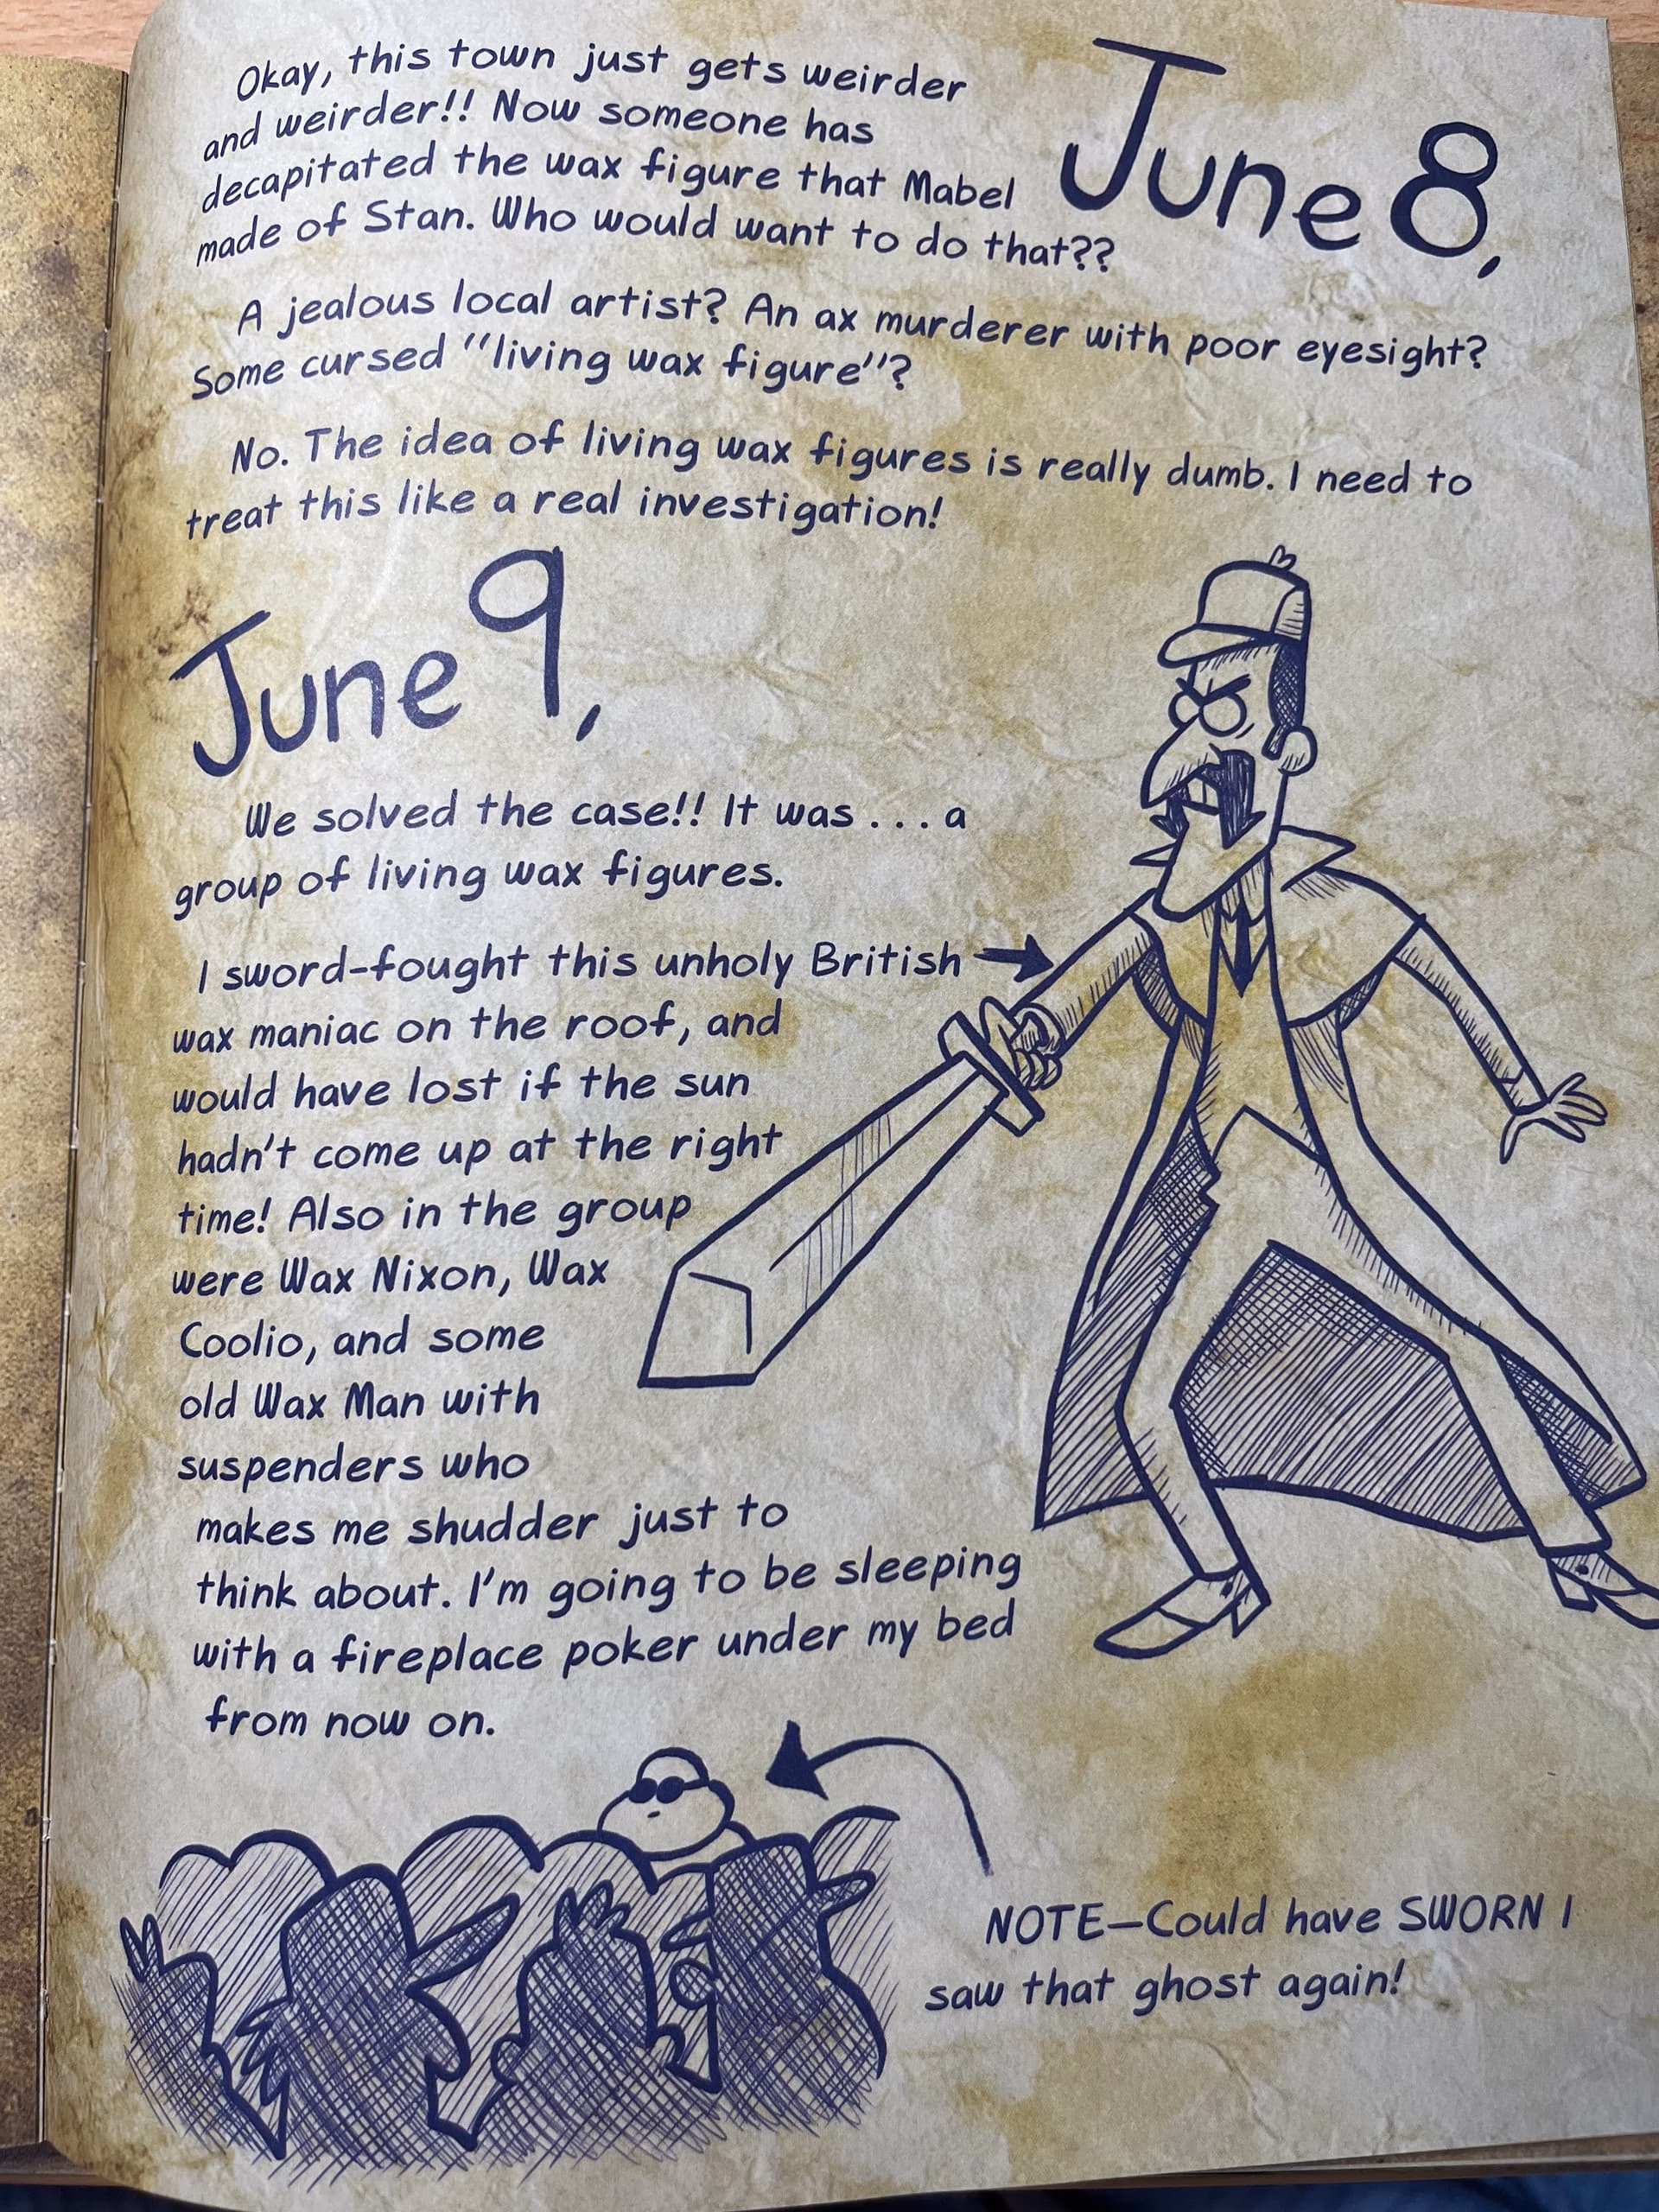 Okay, this town just gets weirder
and weirder!! Now someone has
decapitated the wax figure that Mabel
made of Stan. Who would want to do that??
June 8,
A jealous local artist? An ax murderer with poor eyesight?
Some cursed "living wax figure"?
No. The idea of living wax figures is really dumb. I need to
treat this like a real investigation!
June 9,
We solved the case!! It was . . . a
group of living wax figures.
I sword-fought this unholy British
wax maniac on the roof, and
would have lost if the sun
hadn't come up at the right
time! Also in the group
were Wax Nixon, Wax
Coolio, and some
old Wax Man with
suspenders who
makes me shudder just to
think about. I'm going to be sleeping
with a fireplace poker under my bed
from now on.
NOTE—Could have SWORN I
saw that ghost again!